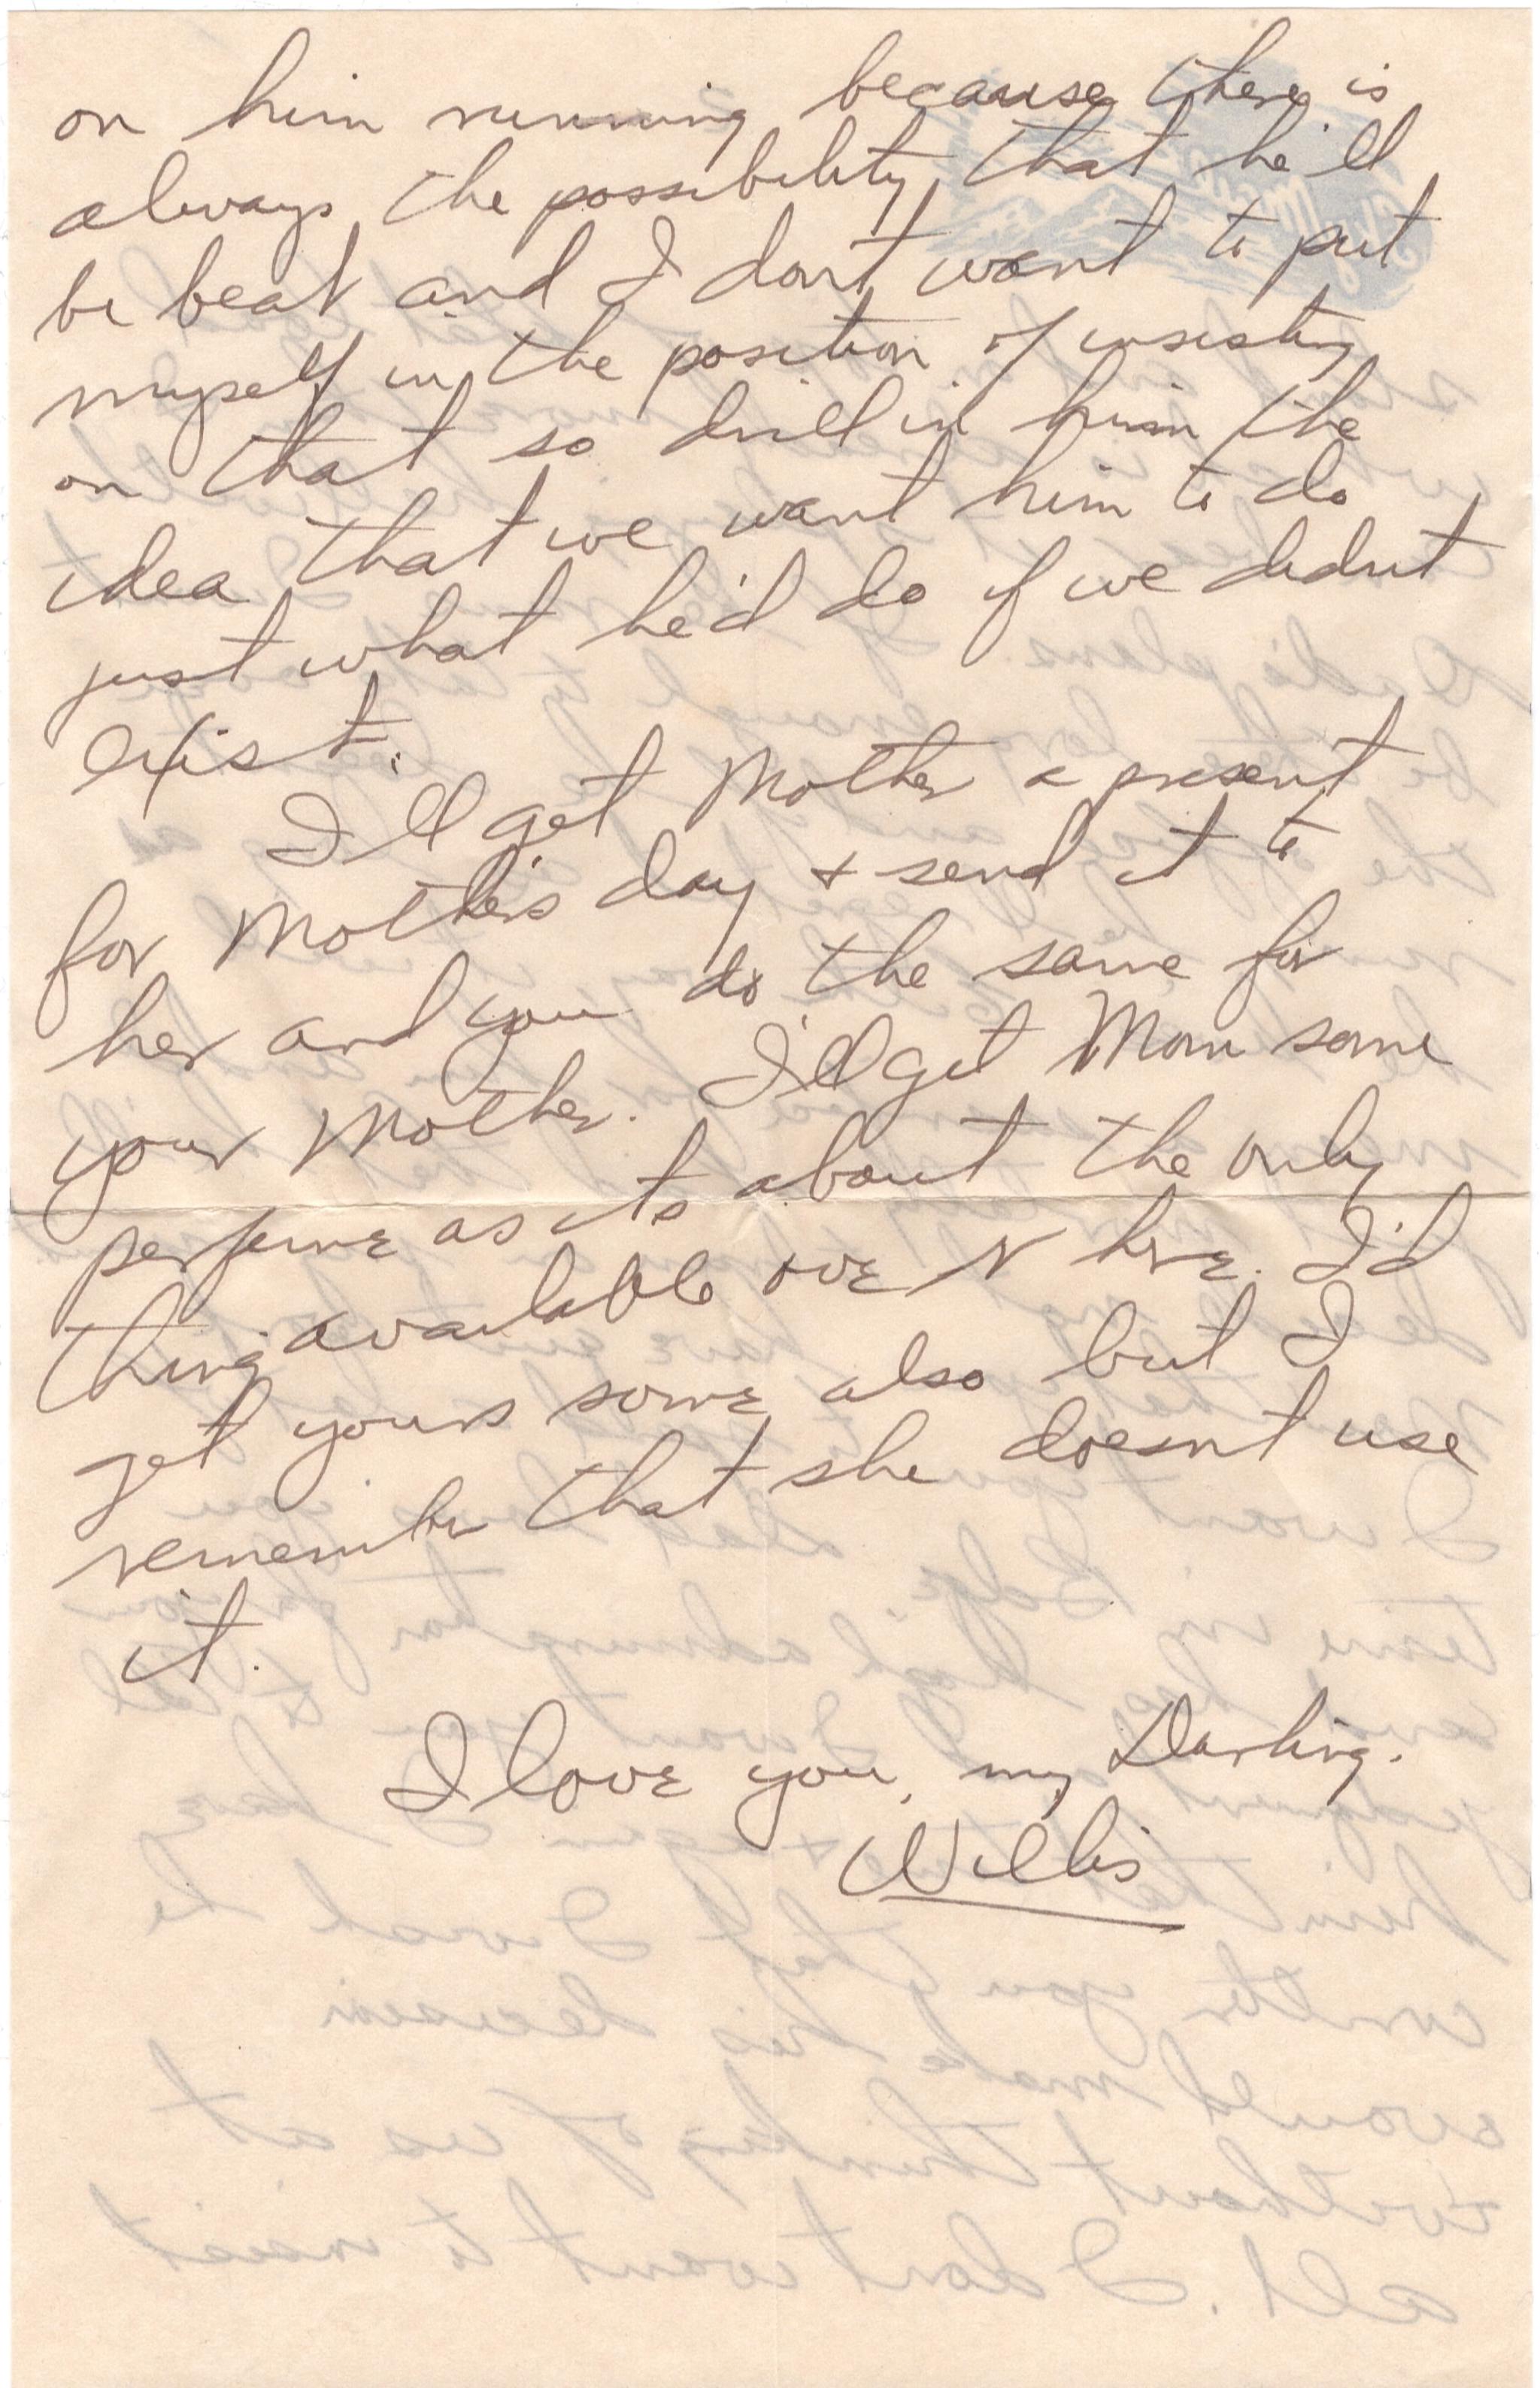 on him running because there is
always the possibility that he'll
be beat and I dont want to put
myself in the position of insisting
on that so drill in him the
idea that we want him to do
just what he'd do if we didnt
exist.
I'll get Mother a present
for Mother's day & send it to
her and you do the same for
your Mother. I'll get Mom some
perfume as its about the only
thing available over here. I'd
get yours some also but I
remember that she doesnt use
it.
I love you, my Darling.
Willis